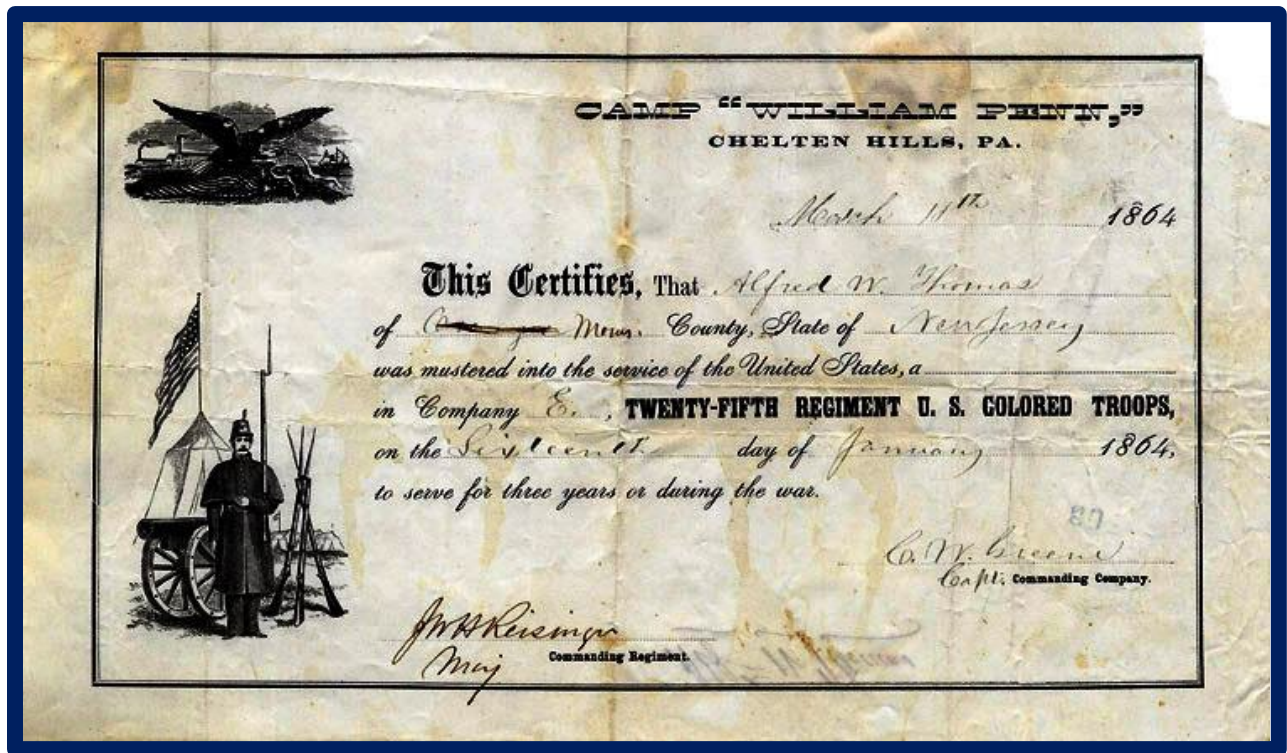 CAMP “WILLIAM PENN,”
CHELTEN HILLS, PA.
March 11th 1864
This Certifies, That Alfred W. Thomas
of Mon. County, State of New Jersey
was mustered into the service of the United States, a
in Company E., TWENTY-FIFTH REGIMENT U. S. COLORED TROOPS,
on the Sixteenth day of January 1864,
to serve for three years or during the war.
C. W. Greene
Capt. Commanding Company.
JWH Reisinger
Maj Commanding Regiment.